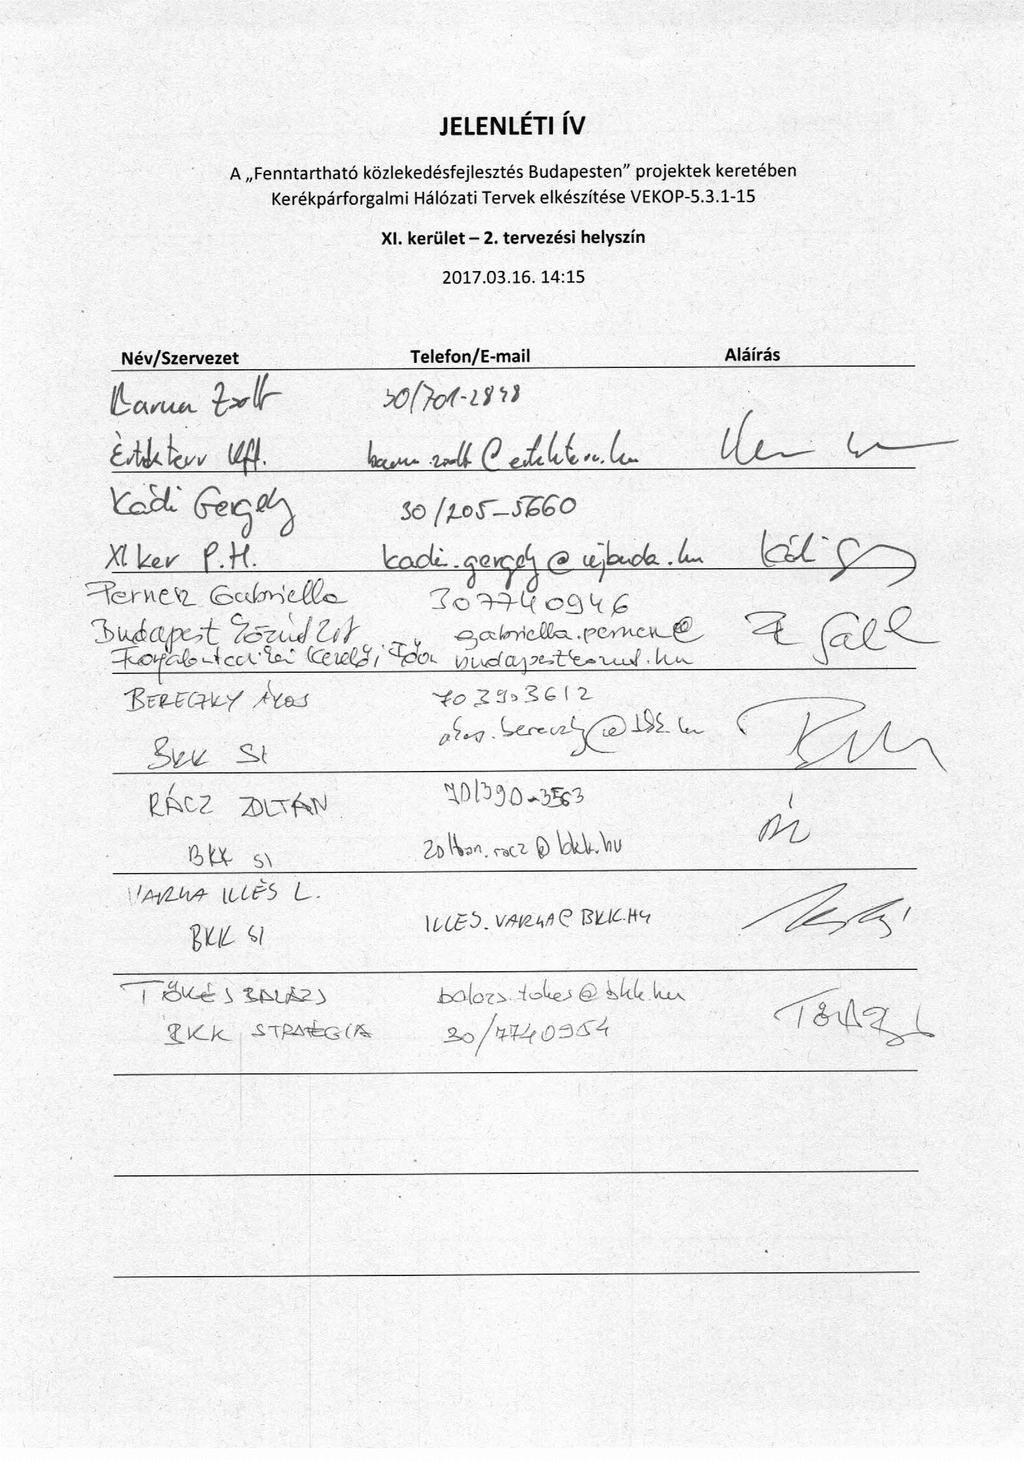 JELENLÉTI ÍV
A „Fenntartható közlekedésfejlesztés Budapesten” projektek keretében
Kerékpárforgalmi Hálózati Tervek elkészítése VEKOP-5.3.1-15
XI. kerület – 2. tervezési helyszín
2017.03.16. 14:15
Név/Szervezet Telefon/E-mail Aláírás
Barna Zsolt 30/701-2898
Értékterv Kft. barna.zsolt@ertekterv.hu
Kádi Gergely 30/205-5660
XI. ker P.H. kadi.gergely@ujbuda.hu Kádi
Pernek Gabriella 307740946
Budapest Közút Zrt gabriella.pernek@
budapestkozut.hu
BERECZKY ÁKOS 70 3903612
akos.bereczky@bkk.hu
BKK SI
RÁCZ ZOLTÁN 70/390-3563
BKK SI zoltan.racz@bkk.hu
VARHA ILLÉS L.
BKK SI ILLES.VARHA@BKK.HU
TŐKÉS BALÁZS balazs.tokes@bkk.hu
BKK STRATÉGIA 30/7740954